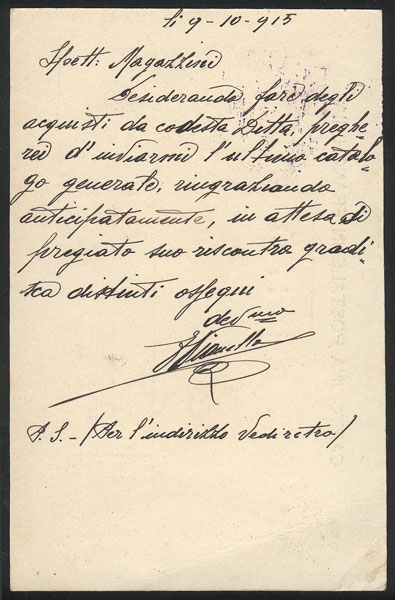 li 9-10-915
Spett: Magazzini
Desiderando fare degli
acquisti da codesta Ditta, preghe-
rei d'inviarmi l'ultimo catalo-
go generale, ringraziando
anticipatamente, in attesa di
pregiato suo riscontro gradi-
sca distinti ossequi
dev mo
P. S. - (Per l'indirizzo vedi retro)